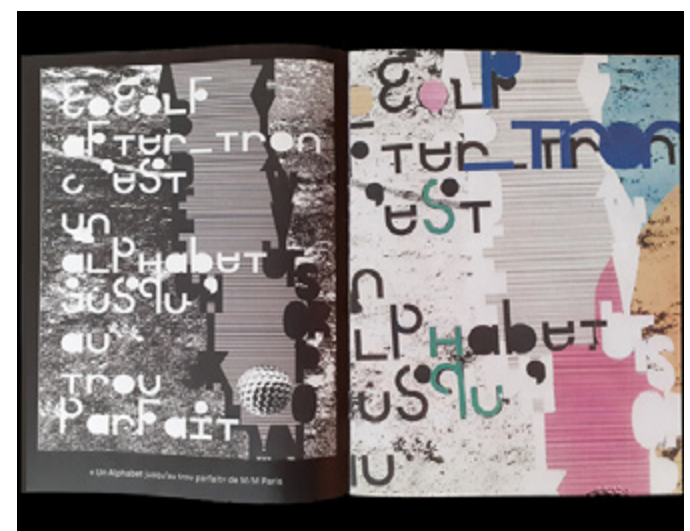 GoGoLF
aFTer_Tron
c'esT
un
aLPHabeT
jusqu'
au
Trou
ParFaiT
« Un Alphabet jusqu'au trou parfait» de M/M Paris
GoLF
Ter_Tron
'esT
n
LPHabeT
usqu'
au